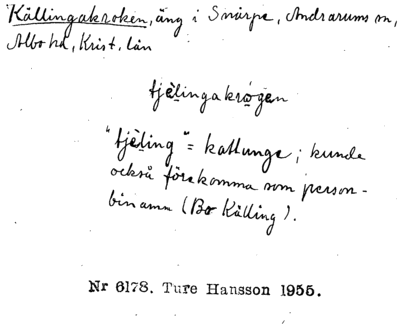 Källingakroken, äng i Snärpe, Andrarums sn,
Albo hd, Krist. län
tjèlingakrogen
"tjèling" = kattunge; kunde
också förekomma som person-
binamn (Bo Källing).
Nr 6178. Ture Hansson 1955.